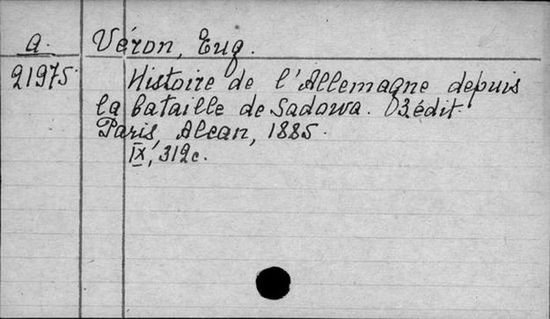 a. Véron, Eug.
21975 Histoire de l'Allemagne depuis
la bataille de Sadowa. 3 édit
Paris, Alcan, 1885.
IX, 312c.